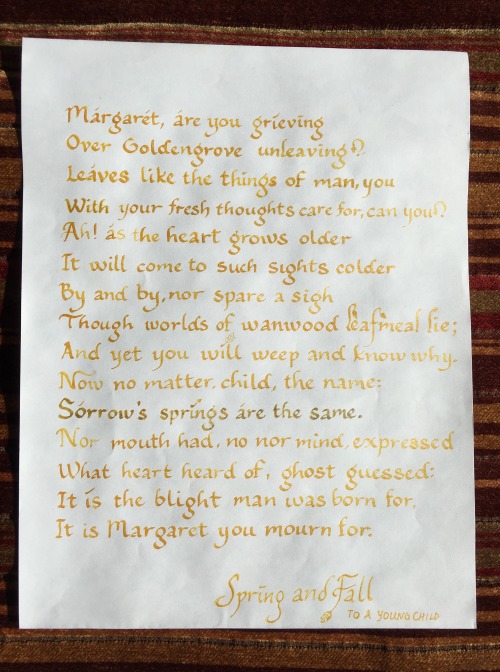 Márgarét, áre you gríevíng
Over Goldengrove unleaving?
Leáves like the things of man, you
With your fresh thoughts care for, can you?
Ah! ás the heart grows older
It will come to such sights colder
By and by, nor spare a sigh
Though worlds of wanwood leafmeal lie;
And yet you will weep and know why.
Now no matter, child, the name:
Sórrow's spríngs áre the same.
Nor mouth had, no nor mind, expressed
What heart heard of, ghost guessed:
It ís the blight man was born for,
It is Margaret you mourn for.
Spring and Fall
TO A YOUNG CHILD